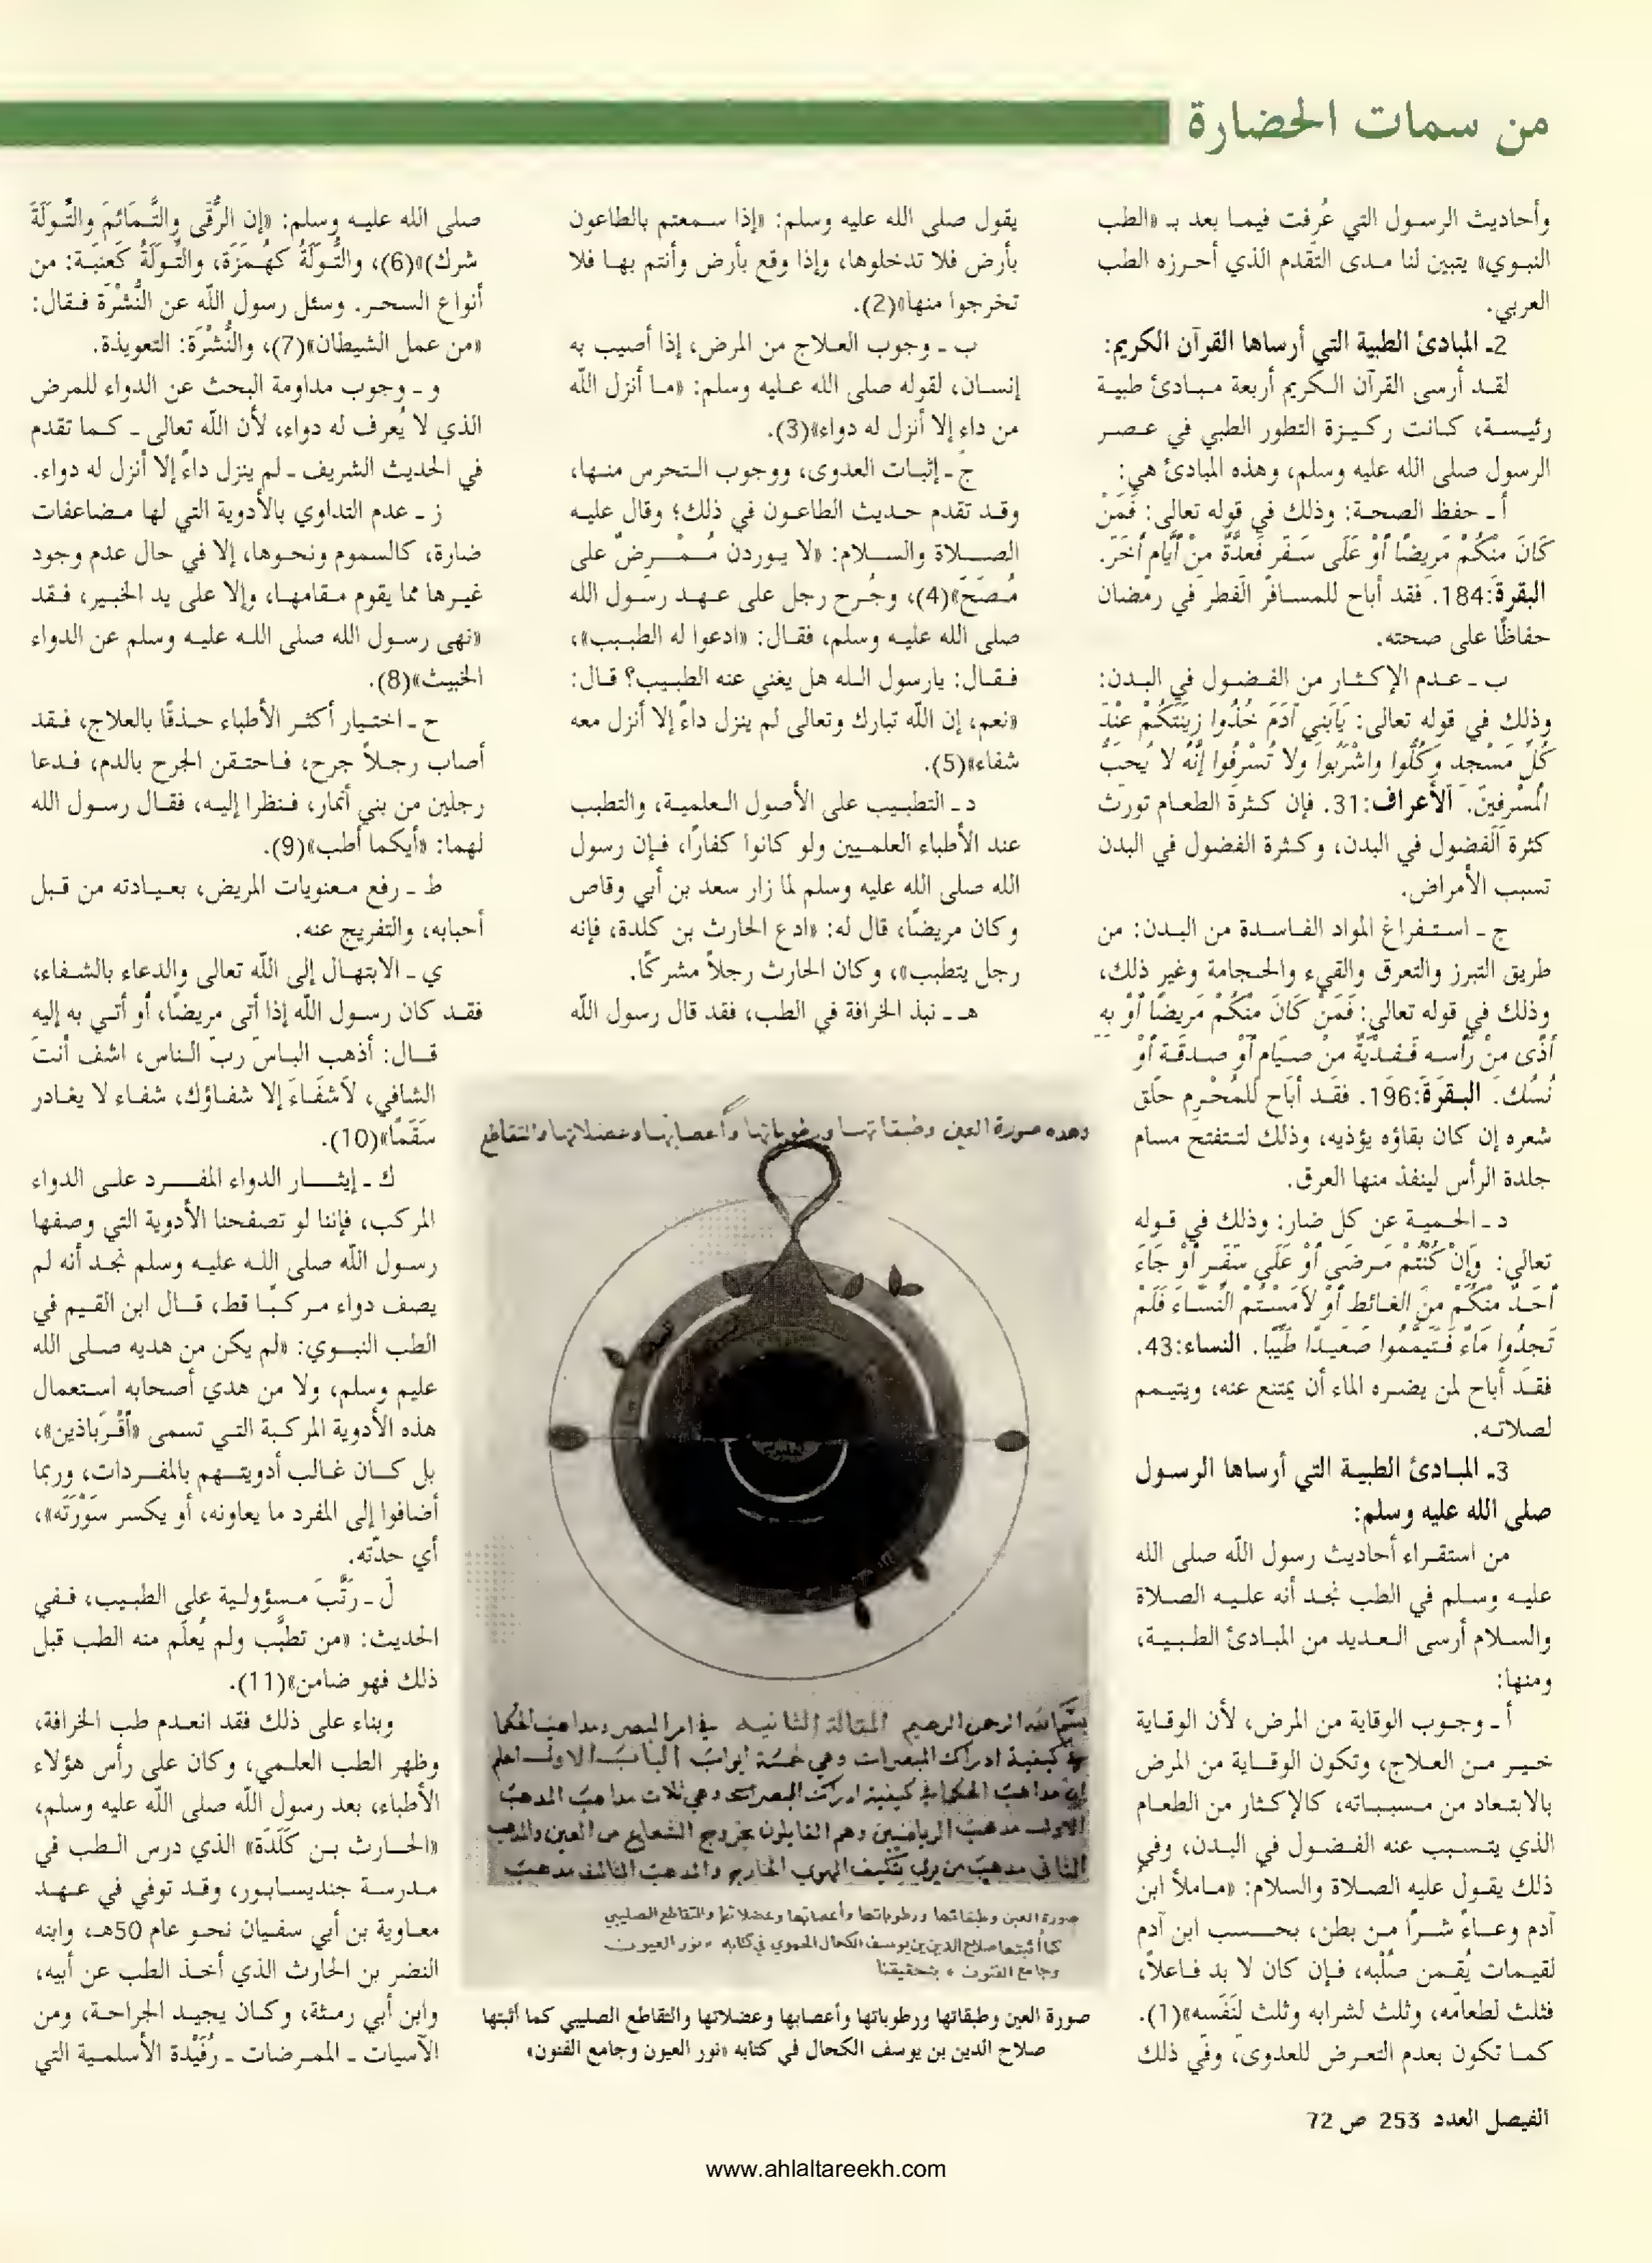 من سمات الحضارة
وأحاديث الرسول التي عُرفت فيما بعد بـ «الطب
النبوي» يتبين لنا مدى التقدم الذي أحرزه الطب
العربي.
2ـ المبادئ الطبية التي أرساها القرآن الكريم:
لقد أرسى القرآن الكريم أربعة مبادئ طبية
رئيسة، كانت ركيزة التطور الطبي في عصر
الرسول صلى الله عليه وسلم، وهذه المبادئ هي:
أ ـ حفظ الصحة: وذلك في قوله تعالى: فَمَنْ
كَانَ مِنْكُمْ مَرِيضًا أَوْ عَلَى سَفَرٍ فَعِدَّةٌ مِنْ أَيَّامٍ أُخَرَ.
البقرة:184. فقد أباح للمسافر الفطر في رمضان
حفاظًا على صحته.
ب ـ عدم الإكثار من الفضول في البدن:
وذلك في قوله تعالى: يَابَنِي آدَمَ خُذُوا زِينَتَكُمْ عِنْدَ
كُلِّ مَسْجِدٍ وَكُلُوا وَاشْرَبُوا وَلا تُسْرِفُوا إِنَّهُ لا يُحِبُّ
الْمُسْرِفِينَ. الأعراف:31. فإن كثرة الطعام تورث
كثرة الفضول في البدن، وكثرة الفضول في البدن
تسبب الأمراض.
ج ـ استفراغ المواد الفاسدة من البدن: من
طريق التبرز والتعرق والقيء والحجامة وغير ذلك،
وذلك في قوله تعالى: فَمَنْ كَانَ مِنْكُمْ مَرِيضًا أَوْ بِهِ
أَذًى مِنْ رَأْسِهِ فَفِدْيَةٌ مِنْ صِيَامٍ أَوْ صَدَقَةٍ أَوْ
نُسُكٍ. البقرة:196. فقد أباح للمُحْرِم حلق
شعره إن كان بقاؤه يؤذيه، وذلك لتتفتح مسام
جلدة الرأس لينفذ منها العرق.
د ـ الحمية عن كل ضار: وذلك في قوله
تعالى: وَإِنْ كُنْتُمْ مَرْضَى أَوْ عَلَى سَفَرٍ أَوْ جَاءَ
أَحَدٌ مِنْكُمْ مِنَ الغَائِطِ أَوْ لاَمَسْتُمُ النِّسَاءَ فَلَمْ
تَجِدُوا مَاءً فَتَيَمَّمُوا صَعِيدًا طَيِّبًا. النساء:43.
فقد أباح لمن يضره الماء أن يمتنع عنه، ويتيمم
لصلاته.
3ـ المبادئ الطبية التي أرساها الرسول
صلى الله عليه وسلم:
من استقراء أحاديث رسول الله صلى الله
عليه وسلم في الطب نجد أنه عليه الصلاة
والسلام أرسى العديد من المبادئ الطبية،
ومنها:
أ ـ وجوب الوقاية من المرض، لأن الوقاية
خير من العلاج، وتكون الوقاية من المرض
بالابتعاد من مسبباته، كالإكثار من الطعام
الذي يتسبب عنه الفضول في البدن، وفي
ذلك يقول عليه الصلاة والسلام: «ماملأ ابنُ
آدم وعاءً شرًا من بطن، بحسب ابن آدم
لقيمات يُقمن صُلْبه، فإن كان لا بد فاعلاً،
فثلث لطعامه، وثلث لشرابه وثلث لنَفَسه»(1).
كما تكون بعدم التعرض للعدوى، وفي ذلك
يقول صلى الله عليه وسلم: «إذا سمعتم بالطاعون
بأرض فلا تدخلوها، وإذا وقع بأرض وأنتم بها فلا
تخرجوا منها»(2).
ب ـ وجوب العلاج من المرض، إذا أصيب به
إنسان، لقوله صلى الله عليه وسلم: «ما أنزل الله
من داء إلا أنزل له دواء»(3).
ج ـ إثبات العدوى، ووجوب التحرس منها،
وقد تقدم حديث الطاعون في ذلك؛ وقال عليه
الصلاة والسلام: «لا يوردن مُمْرِضٌ على
مُصحّ»(4)، وجُرح رجل على عهد رسول الله
صلى الله عليه وسلم، فقال: «ادعوا له الطبيب»،
فقال: يارسول الله هل يغني عنه الطبيب؟ قال:
«نعم، إن الله تبارك وتعالى لم ينزل داءً إلا أنزل معه
شفاء»(5).
د ـ التطبيب على الأصول العلمية، والتطبب
عند الأطباء العلميين ولو كانوا كفارًا، فإن رسول
الله صلى الله عليه وسلم لما زار سعد بن أبي وقاص
وكان مريضًا، قال له: «ادع الحارث بن كلدة، فإنه
رجل يتطبب»، وكان الحارث رجلاً مشركًا.
هـ ـ نبذ الخرافة في الطب، فقد قال رسول الله
وهذه صورة العين وطبقاتها ورطوباتها وأعصابها وعضلاتها والتقاطع
بسم الله الرحمن الرحيم المقالة الثانية في امر البصر ومذاهب الحكما
في كيفية ادراك المبصرات وهي خمسة ابواب الباب الاول اعلم
ان مذاهب الحكما في كيفية ادراك المبصرات وهي ثلاث مذاهب المذهب
الاول مذهب الرياضيين وهم القايلون بخروج الشعاع من العين والمذهب
الثاني مذهب من يرى تكيف الهوى الخارج والمذهب الثالث مذهب
صورة العين وطبقاتها ورطوباتها وأعصابها وعضلاتها والتقاطع الصليبي
كما أثبتها صلاح الدين بن يوسف الكحال الحموي في كتابه «نور العيون
وجامع الفنون» بتحقيقنا
صورة العين وطبقاتها ورطوباتها وأعصابها وعضلاتها والتقاطع الصليبي كما أثبتها
صلاح الدين بن يوسف الكحال في كتابه «نور العيون وجامع الفنون»
صلى الله عليه وسلم: «إن الرُّقَى والتَّمَائمَ والتُّوَلَةَ
شرك)»(6)، والتُّوَلَةُ كهُمَزَة، والتِّوَلَةُ كَعِنَبَة: من
أنواع السحر. وسئل رسول الله عن النُّشْرَة فقال:
«من عمل الشيطان»(7)، والنُّشْرَة: التعويذة.
و ـ وجوب مداومة البحث عن الدواء للمرض
الذي لا يُعرف له دواء، لأن الله تعالى ـ كما تقدم
في الحديث الشريف ـ لم ينزل داءً إلا أنزل له دواء.
ز ـ عدم التداوي بالأدوية التي لها مضاعفات
ضارة، كالسموم ونحوها، إلا في حال عدم وجود
غيرها مما يقوم مقامها، وإلا على يد الخبير، فقد
«نهى رسول الله صلى الله عليه وسلم عن الدواء
الخبيث»(8).
ح ـ اختيار أكثر الأطباء حذقًا بالعلاج، فقد
أصاب رجلاً جرح، فاحتقن الجرح بالدم، فدعا
رجلين من بني أنمار، فنظرا إليه، فقال رسول الله
لهما: «أيكما أطب»(9).
ط ـ رفع معنويات المريض، بعيادته من قبل
أحبابه، والتفريج عنه.
ي ـ الابتهال إلى الله تعالى والدعاء بالشفاء،
فقد كان رسول الله إذا أتى مريضًا، أو أُتي به إليه
قال: أذهب الباس ربّ الناس، اشف أنت
الشافي، لاَشفَاءَ إلا شفاؤك، شفاء لا يغادر
سَقَمًا»(10).
ك ـ إيثار الدواء المفرد على الدواء
المركب، فإننا لو تصفحنا الأدوية التي وصفها
رسول الله صلى الله عليه وسلم نجد أنه لم
يصف دواء مركبًا قط، قال ابن القيم في
الطب النبوي: «لم يكن من هديه صلى الله
عليم وسلم، ولا من هدي أصحابه استعمال
هذه الأدوية المركبة التي تسمى «أَقْرَباذين»،
بل كان غالب أدويتهم بالمفردات، وربما
أضافوا إلى المفرد ما يعاونه، أو يكسر سَوْرَتَه»،
أي حدّته.
ل ـ رَتَّبَ مسؤولية على الطبيب، ففي
الحديث: «من تطبَّب ولم يُعلَم منه الطب قبل
ذلك فهو ضامن»(11).
وبناء على ذلك فقد انعدم طب الخرافة،
وظهر الطب العلمي، وكان على رأس هؤلاء
الأطباء، بعد رسول الله صلى الله عليه وسلم،
«الحارث بن كَلَدَة» الذي درس الطب في
مدرسة جنديسابور، وقد توفي في عهد
معاوية بن أبي سفيان نحو عام 50هـ، وابنه
النضر بن الحارث الذي أخذ الطب عن أبيه،
وابن أبي رمثة، وكان يجيد الجراحة، ومن
الآسيات ـ الممرضات ـ رُفَيْدة الأسلمية التي
الفيصل العدد 253 ص 72
www.ahlaltareekh.com